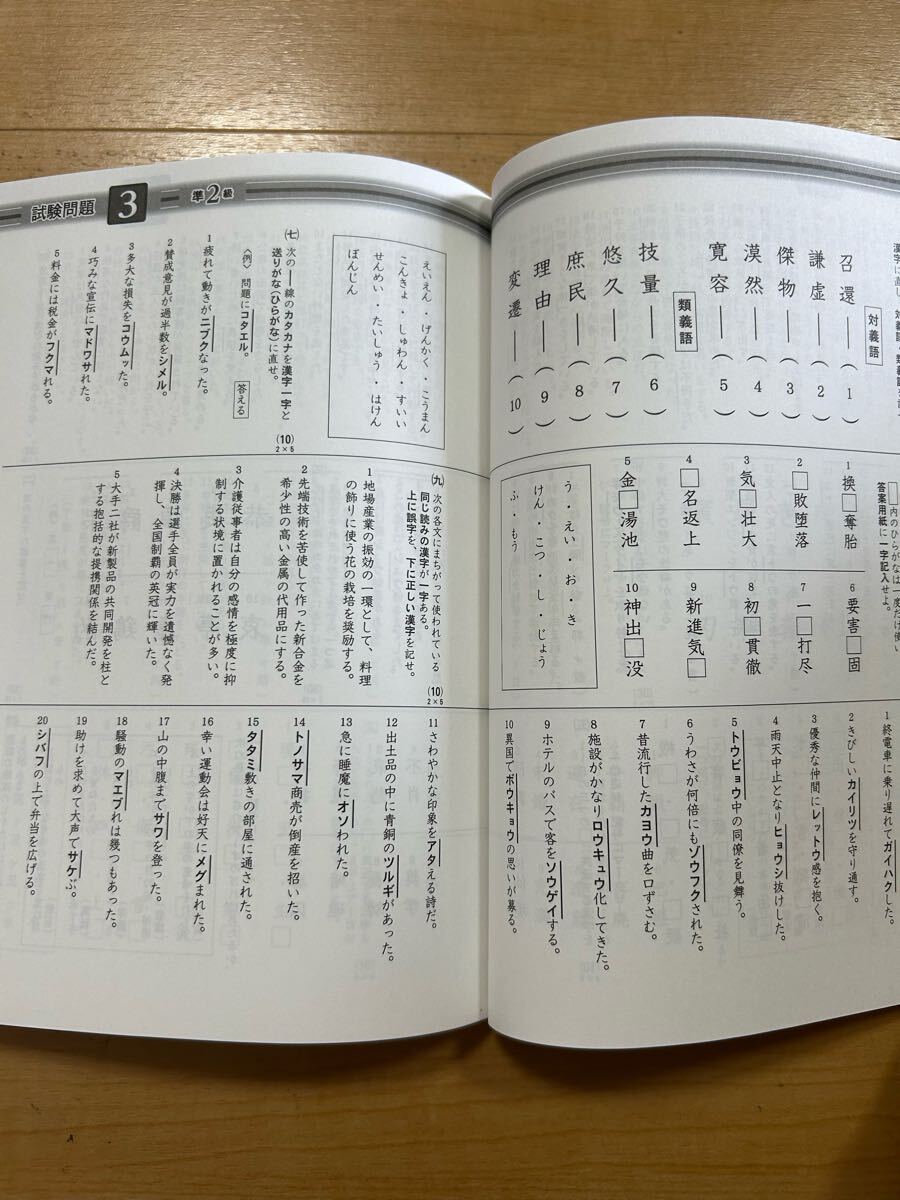 試験問題 3 準2級
漢字に直し、対義語・類義語を
対義語
召還――(1)
謙虚――(2)
傑物――(3)
漠然――(4)
寛容――(5)
類義語
技量――(6)
悠久――(7)
庶民――(8)
理由――(9)
変遷――(10)
えいえん・げんかく・こうまん
こんきょ・しゅわん・すいい
せんめい・たいしゅう・はけん
ぼんじん
(七) 次の――線のカタカナを漢字一字と
送りがな(ひらがな)に直せ。
(10) 2×5
〈例〉 問題にコタエル。 答える
1 疲れて動きがニブクなった。
2 賛成意見が過半数をシメル。
3 多大な損失をコウムッた。
4 巧みな宣伝にマドワサれた。
5 料金には税金がフクマれる。
□内のひらがなは一度だけ使い
答案用紙に一字記入せよ。
1 換□奪胎
2 □敗堕落
3 気□壮大
4 □名返上
5 金□湯池
6 要害□固
7 一□打尽
8 初□貫徹
9 新進気□
10 神出□没
う・えい・お・き
けん・こつ・し・じょう
ふ・もう
(九) 次の各文にまちがって使われている
同じ読みの漢字が一字ある。
上に誤字を、下に正しい漢字を記せ。
(10) 2×5
1 地場産業の振効の一環として、料理
の飾りに使う花の栽培を奨励する。
2 先端技術を苦使して作った新合金を
希少性の高い金属の代用品にする。
3 介護従事者は自分の感情を極度に抑
制する状境に置かれることが多い。
4 決勝は選手全員が実力を遺憾なく発
揮し、全国制覇の英冠に輝いた。
5 大手二社が新製品の共同開発を柱と
する抱括的な提携関係を結んだ。
1 終電車に乗り遅れてガイハクした。
2 きびしいカイリツを守り通す。
3 優秀な仲間にレットウ感を抱く。
4 雨天中止となりヒョウシ抜けした。
5 トウビョウ中の同僚を見舞う。
6 うわさが何倍にもゾウフクされた。
7 昔流行したカヨウ曲を口ずさむ。
8 施設がかなりロウキュウ化してきた。
9 ホテルのバスで客をソウゲイする。
10 異国でボウキョウの思いが募る。
11 さわやかな印象をアタえる詩だ。
12 出土品の中に青銅のツルギがあった。
13 急に睡魔にオソわれた。
14 トノサマ商売が倒産を招いた。
15 タタミ敷きの部屋に通された。
16 幸い運動会は好天にメグまれた。
17 山の中腹までサワを登った。
18 騒動のマエブれは幾つもあった。
19 助けを求めて大声でサケぶ。
20 シバフの上で弁当を広げる。